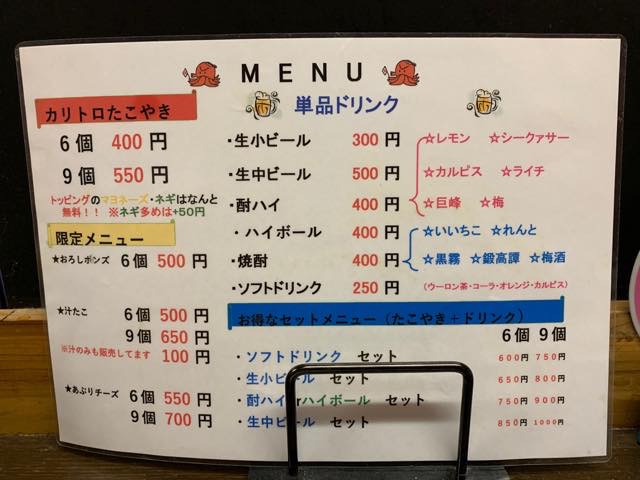 MENU
カリトロたこやき
6個 400円
9個 550円
トッピングのマヨネーズ・ネギはなんと
無料！！ ※ネギ多めは+50円
限定メニュー
★おろしポンズ 6個 500円
★汁たこ 6個 500円
9個 650円
※汁のみも販売してます 100円
★あぶりチーズ 6個 550円
9個 700円
単品ドリンク
・生小ビール 300円
・生中ビール 500円
・酎ハイ 400円
・ハイボール 400円
・焼酎 400円
・ソフトドリンク 250円
☆レモン ☆シークァサー
☆カルピス ☆ライチ
☆巨峰 ☆梅
☆いいちこ ☆れんと
☆黒霧 ☆鍛高譚 ☆梅酒
（ウーロン茶・コーラ・オレンジ・カルピス）
お得なセットメニュー（たこやき＋ドリンク）
6個 9個
・ソフトドリンク セット 600円 750円
・生小ビール セット 650円 800円
・酎ハイorハイボール セット 750円 900円
・生中ビール セット 850円 1000円